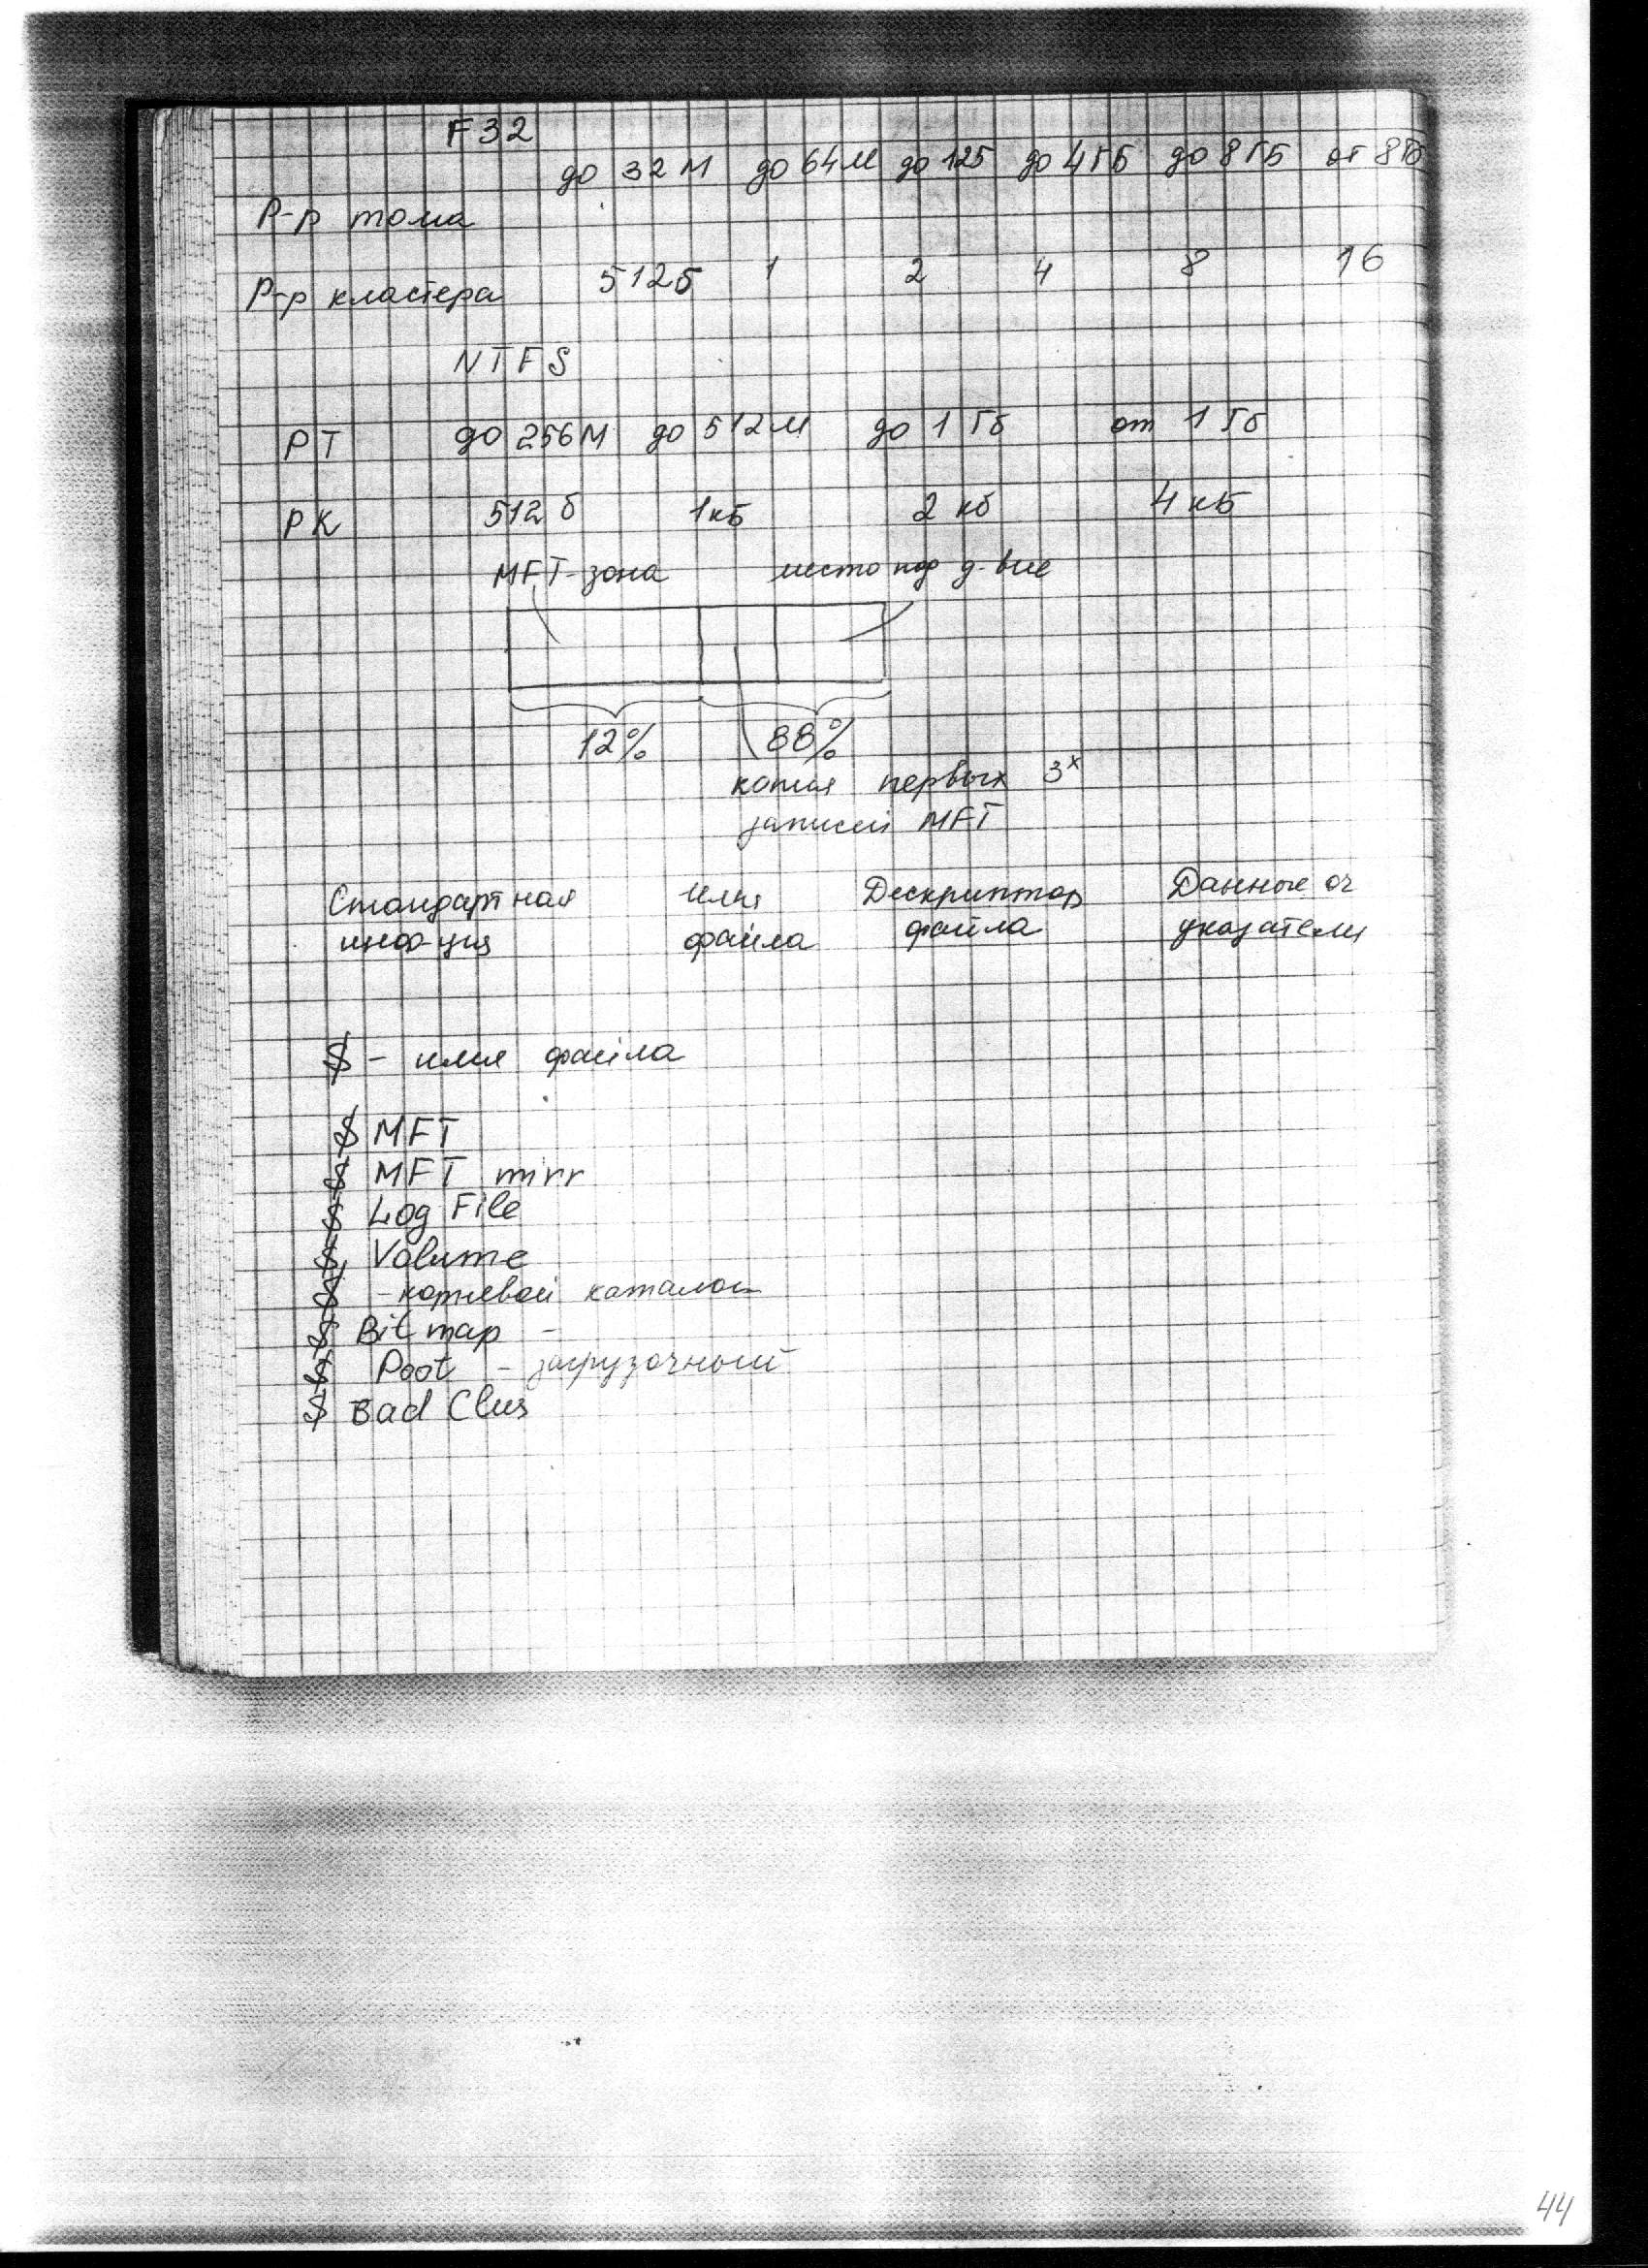 F32
до 32 М до 64 М до 125 до 4 ГБ до 8 ГБ от 8 ГБ
Р-р тома
Р-р кластера 512б 1 2 4 8 16
NTFS
РТ до 256М до 512М до 1 Гб от 1 Гб
РК 512 б 1кБ 2 кб 4 кБ
MFT-зона место под
12% 88%
копия первых 3х
записей MFT
Стандартная Имя Дескриптор Данные
инф-ция файла файла указатели
$ - имя файла
$ MFT
$ MFT mirr
$ Log File
$ Volume
$ - корневой каталог
$ Bitmap -
$ Poot - загрузочный
$ Bad Clus
44